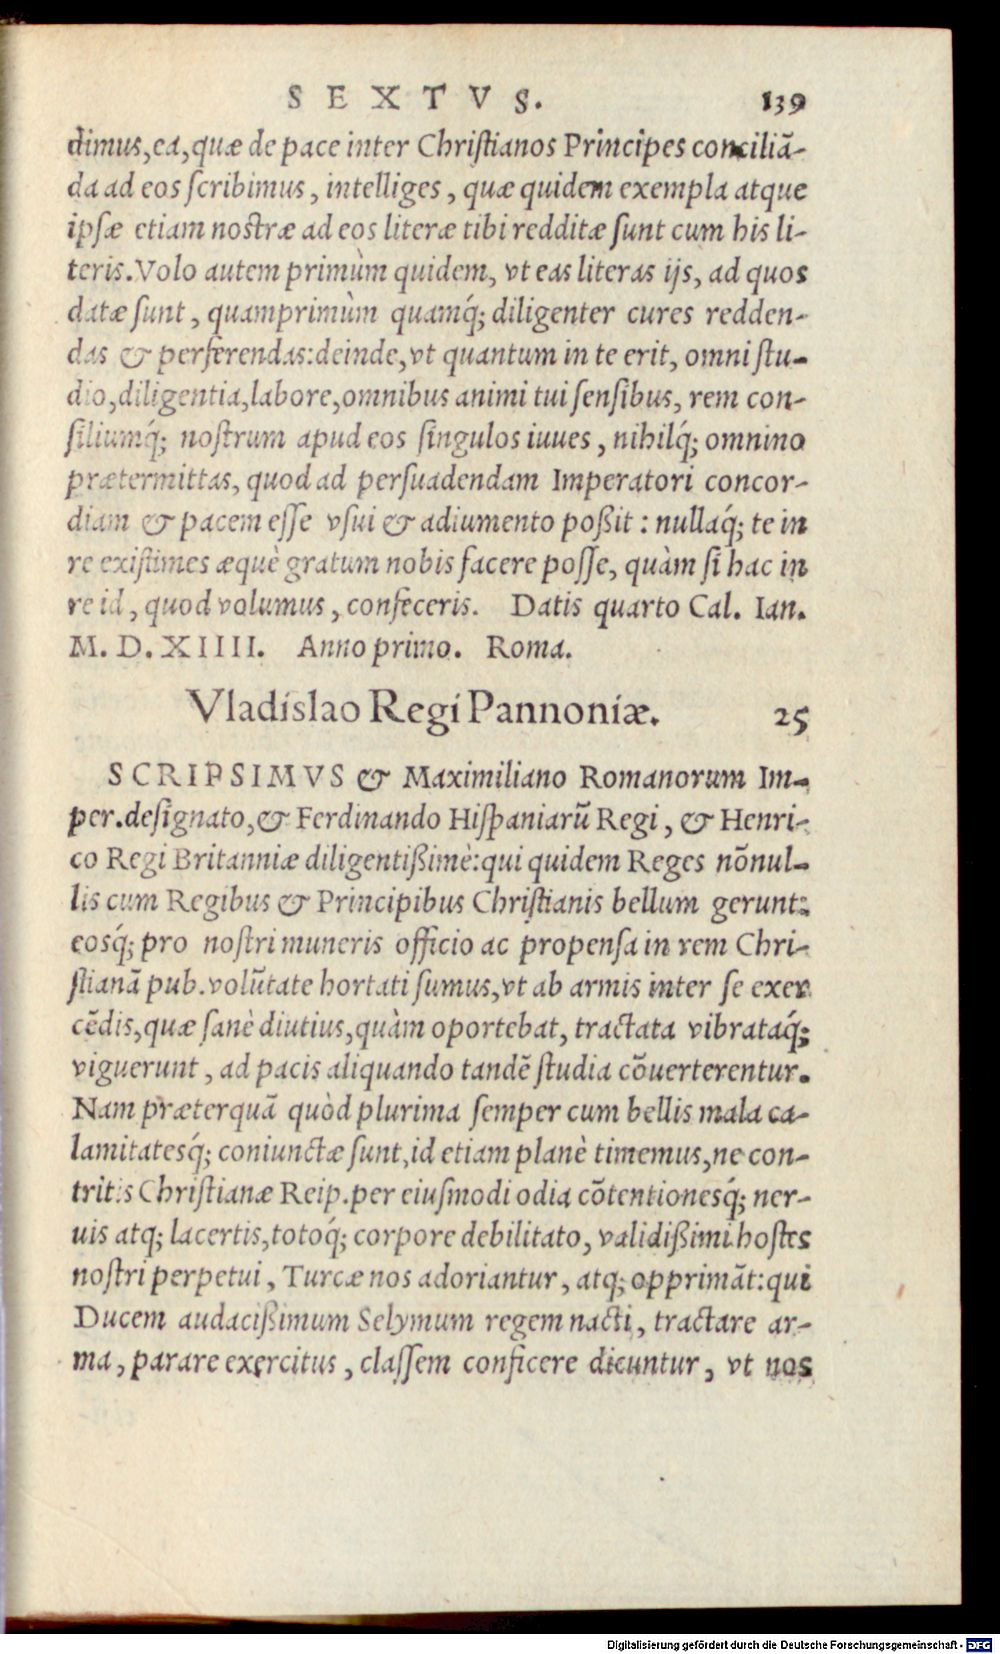 SEXTVS. 139
dimus, ea, quæ de pace inter Christianos Principes conciliā-
da ad eos scribimus, intelliges, quæ quidem exempla atque
ipsæ etiam nostræ ad eos literæ tibi redditæ sunt cum his li-
teris. Volo autem primùm quidem, vt eas literas ijs, ad quos
datæ sunt, quamprimùm quamq́; diligenter cures redden-
das & perferendas: deinde, vt quantum in te erit, omni stu-
dio, diligentia, labore, omnibus animi tui sensibus, rem con-
siliumq́; nostrum apud eos singulos iuues, nihilq́; omnino
prætermittas, quod ad persuadendam Imperatori concor-
diam & pacem esse vsui & adiumento poßit: nullaq́; te in
re existimes æquè gratum nobis facere posse, quàm si hac in
re id, quod volumus, confeceris. Datis quarto Cal. Ian.
M. D. XIIII. Anno primo. Roma.
Vladislao Regi Pannoniæ. 25
SCRIPSIMVS & Maximiliano Romanorum Im-
per. designato, & Ferdinando Hispaniarū Regi, & Henri-
co Regi Britanniæ diligentißimè: qui quidem Reges nōnul-
lis cum Regibus & Principibus Christianis bellum gerunt:
eosq́; pro nostri muneris officio ac propensa in rem Chri-
stianā pub. volūtate hortati sumus, vt ab armis inter se exer
cēdis, quæ sanè diutius, quàm oportebat, tractata vibrataq́;
viguerunt, ad pacis aliquando tandē studia cōuerterentur.
Nam præterquā quòd plurima semper cum bellis mala ca-
lamitatesq́; coniunctæ sunt, id etiam planè timemus, ne con-
tritis Christianæ Reip. per eiusmodi odia cōtentionesq́; ner-
uis atq; lacertis, totoq́; corpore debilitato, validißimi hostes
nostri perpetui, Turcæ nos adoriantur, atq; opprimāt: qui
Ducem audacißimum Selymum regem nacti, tractare ar-
ma, parare exercitus, classem conficere dicuntur, vt nos
Digitalisierung gefördert durch die Deutsche Forschungsgemeinschaft - DFG